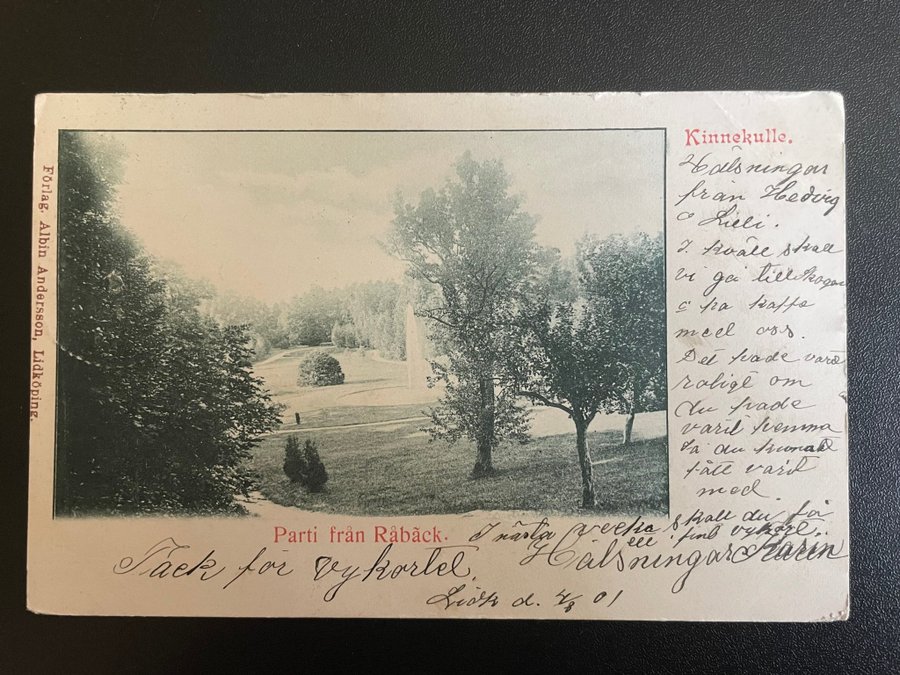 Kinnekulle.
Hälsningar
från Hedvig
o Lieli.
I kväll skall
vi gå till skogen
o ha kaffe
med oss.
Det hade varit
roligt om
du hade
varit hemma
så du kunnat
fått varit
med.
I nästa vecka skall du få
ett fint vykort.
Hälsningar Karin
Parti från Råbäck.
Tack för vykortet.
Lidk d. 4/8 01
Förlag, Albin Andersson, Lidköping.